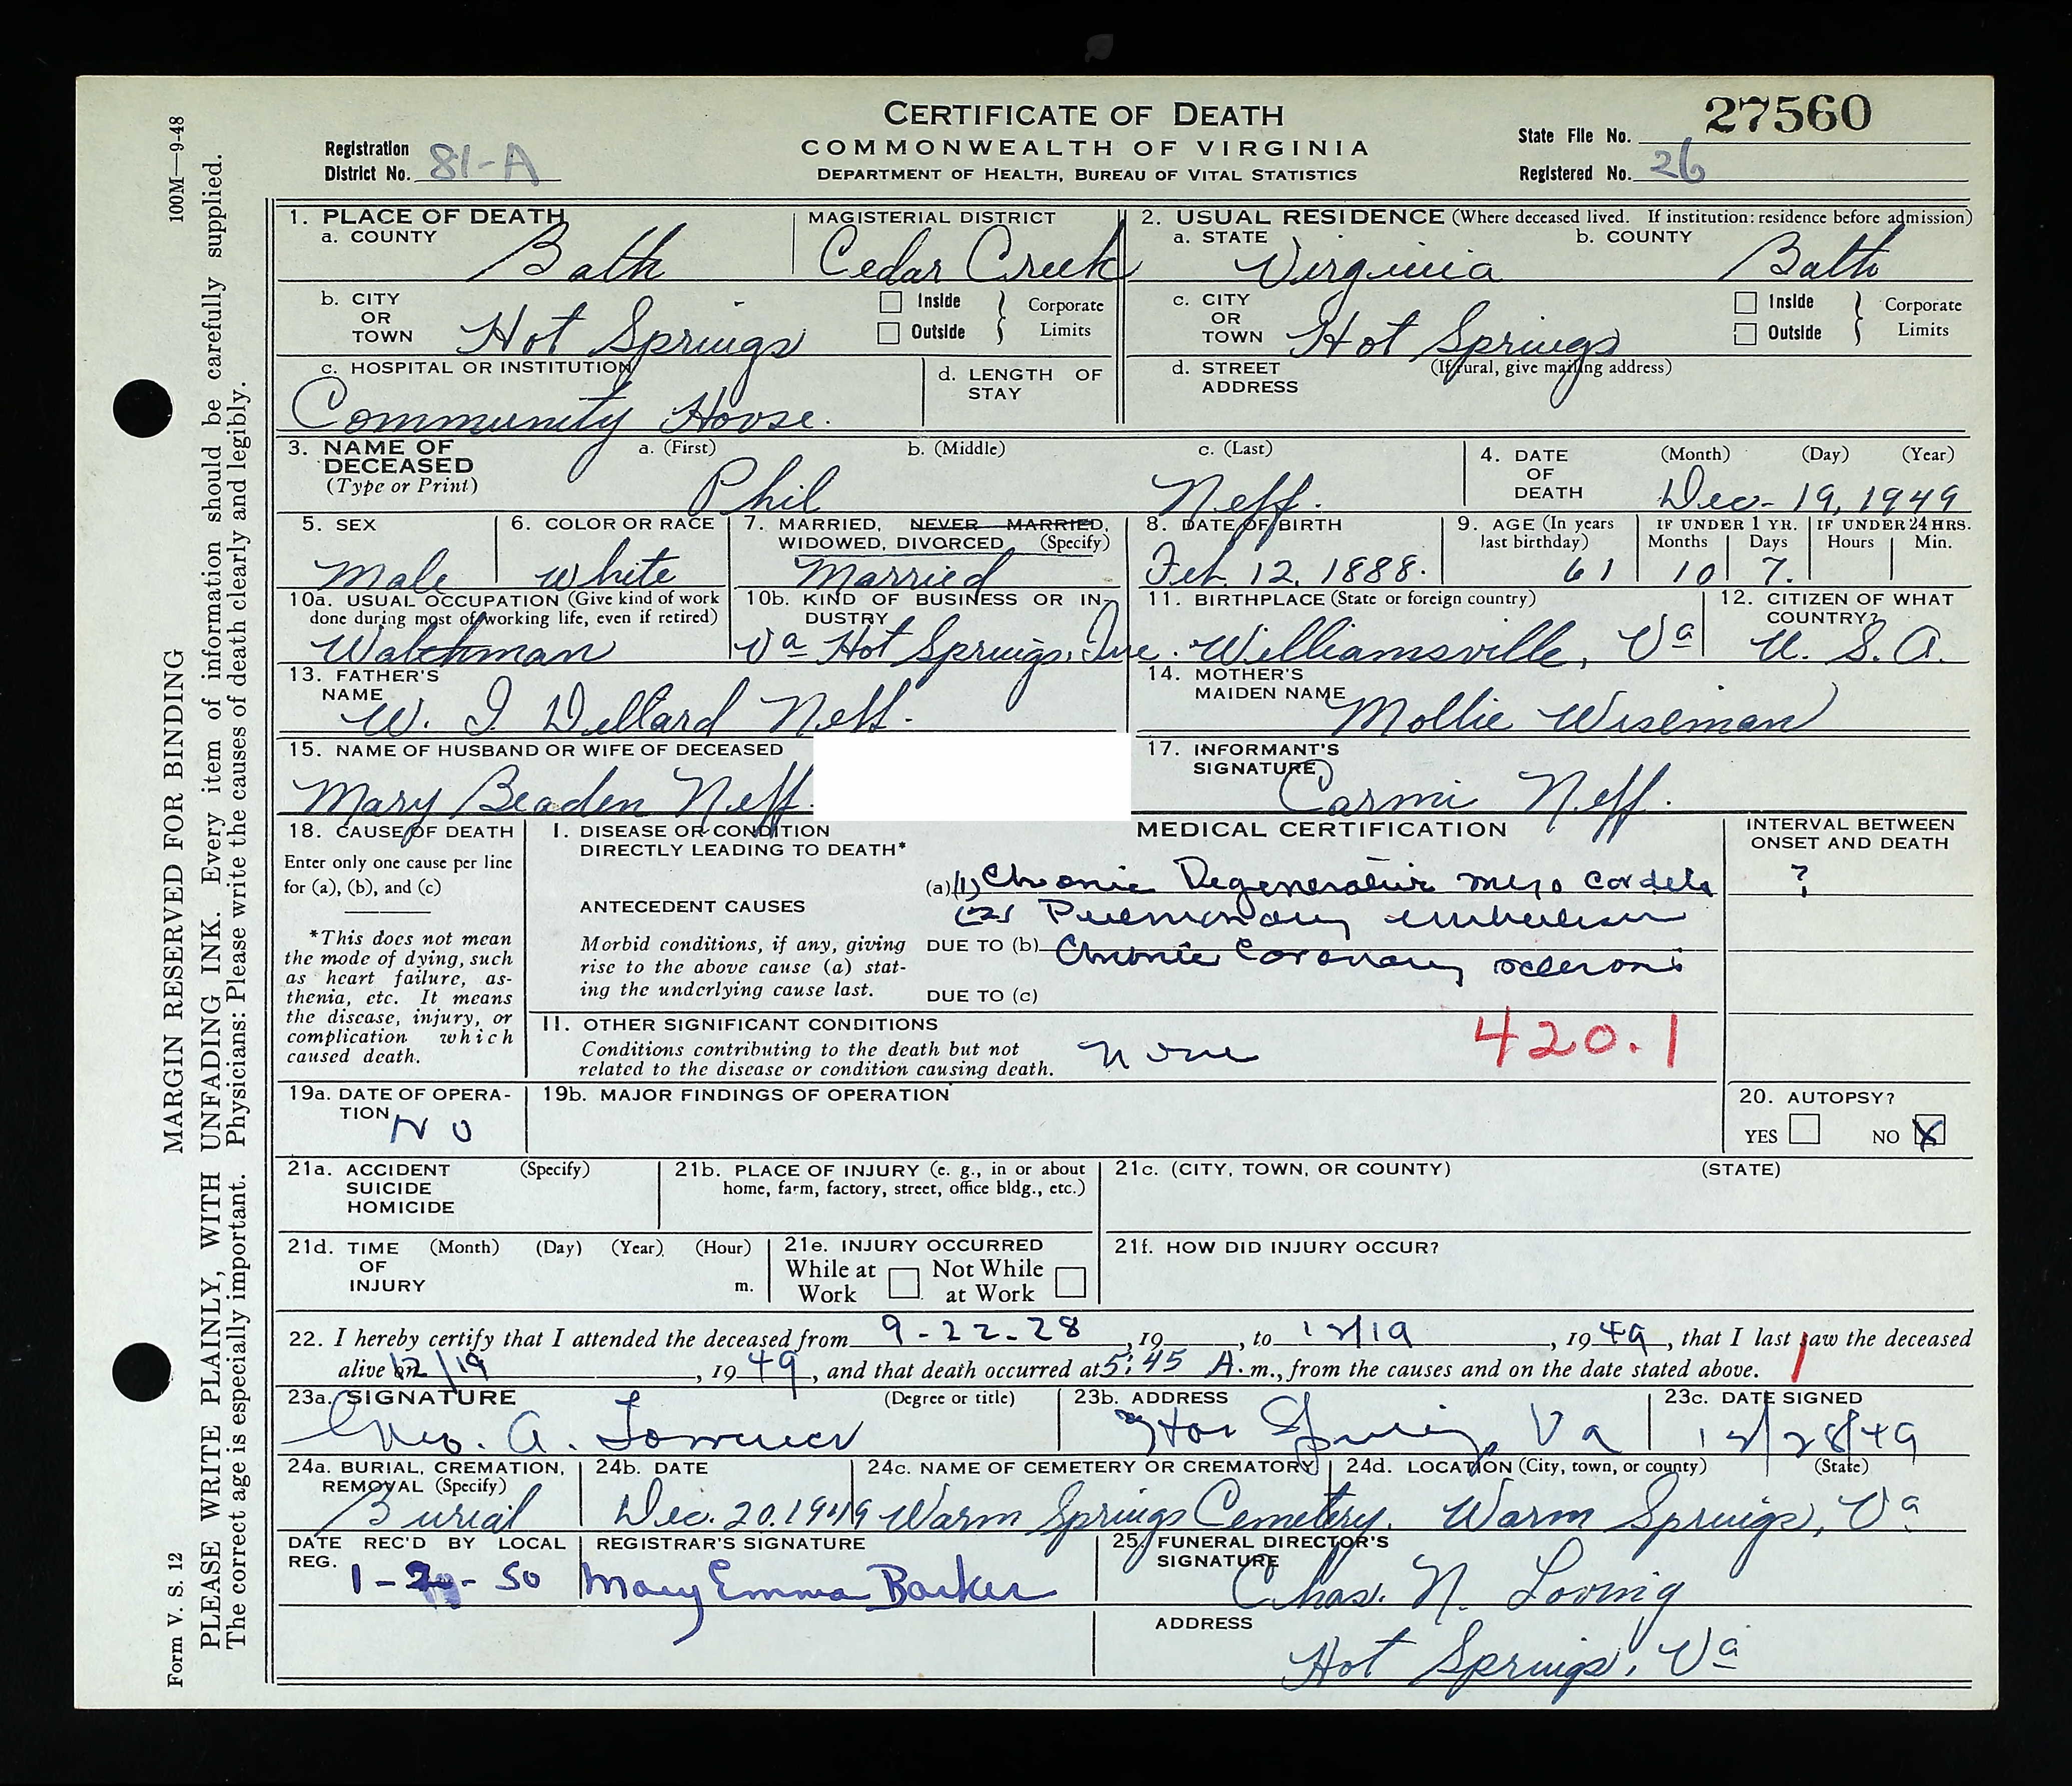 CERTIFICATE OF DEATH
COMMONWEALTH OF VIRGINIA
DEPARTMENT OF HEALTH, BUREAU OF VITAL STATISTICS
Registration District No. 81-A
State File No. 27560
Registered No. 26
100M—9-48
MARGIN RESERVED FOR BINDING
PLEASE WRITE PLAINLY, WITH UNFADING INK. Every item of information should be carefully supplied.
The correct age is especially important. Physicians: Please write the causes of death clearly and legibly.
Form V. S. 12
1. PLACE OF DEATH
a. COUNTY Bath
MAGISTERIAL DISTRICT Cedar Creek
2. USUAL RESIDENCE (Where deceased lived. If institution: residence before admission)
a. STATE Virginia
b. COUNTY Bath
b. CITY OR TOWN Hot Springs
Inside
Outside
Corporate Limits
c. CITY OR TOWN Hot Springs
Inside
Outside
Corporate Limits
c. HOSPITAL OR INSTITUTION
Community House.
d. LENGTH OF STAY
d. STREET ADDRESS (If rural, give mailing address)
3. NAME OF DECEASED (Type or Print)
a. (First) Phil
b. (Middle)
c. (Last) Neff.
4. DATE OF DEATH
(Month) (Day) (Year)
Dec- 19, 1949
5. SEX
Male
6. COLOR OR RACE
White
7. MARRIED, NEVER MARRIED, WIDOWED, DIVORCED (Specify)
Married
8. DATE OF BIRTH
Feb. 12. 1888.
9. AGE (In years last birthday)
61
IF UNDER 1 YR.
Months 10
Days 7.
IF UNDER 24 HRS.
Hours Min.
10a. USUAL OCCUPATION (Give kind of work done during most of working life, even if retired)
Watchman
10b. KIND OF BUSINESS OR INDUSTRY
Va Hot Springs, Inc.
11. BIRTHPLACE (State or foreign country)
Williamsville, Va
12. CITIZEN OF WHAT COUNTRY?
U. S. A.
13. FATHER'S NAME
W. I. Dillard Neff.
14. MOTHER'S MAIDEN NAME
Mollie Wiseman
15. NAME OF HUSBAND OR WIFE OF DECEASED
Mary Beaden Neff.
17. INFORMANT'S SIGNATURE
Carmi Neff.
18. CAUSE OF DEATH
Enter only one cause per line for (a), (b), and (c)
*This does not mean the mode of dying, such as heart failure, asthenia, etc. It means the disease, injury, or complication which caused death.
MEDICAL CERTIFICATION
INTERVAL BETWEEN ONSET AND DEATH
?
I. DISEASE OR CONDITION DIRECTLY LEADING TO DEATH*
(a) (1) Chronic Degenerative
(2) Pulmonary
ANTECEDENT CAUSES
Morbid conditions, if any, giving rise to the above cause (a) stating the underlying cause last.
DUE TO (b) Chronic Coronary sclerosis
DUE TO (c)
II. OTHER SIGNIFICANT CONDITIONS
Conditions contributing to the death but not related to the disease or condition causing death.
None
420.1
19a. DATE OF OPERATION
NO
19b. MAJOR FINDINGS OF OPERATION
20. AUTOPSY?
YES NO X
21a. ACCIDENT SUICIDE HOMICIDE (Specify)
21b. PLACE OF INJURY (e. g., in or about home, farm, factory, street, office bldg., etc.)
21c. (CITY, TOWN, OR COUNTY) (STATE)
21d. TIME OF INJURY (Month) (Day) (Year) (Hour) m.
21e. INJURY OCCURRED
While at Work
Not While at Work
21f. HOW DID INJURY OCCUR?
22. I hereby certify that I attended the deceased from 9-22-28, 19, to 12/19, 1949, that I last saw the deceased
alive on 12/19, 1949, and that death occurred at 5:45 A.m., from the causes and on the date stated above.
23a. SIGNATURE (Degree or title)
Geo. A.
23b. ADDRESS
Hot Springs, Va
23c. DATE SIGNED
12/28/49
24a. BURIAL, CREMATION, REMOVAL (Specify)
Burial
24b. DATE
Dec. 20. 1949
24c. NAME OF CEMETERY OR CREMATORY
Warm Springs Cemetery.
24d. LOCATION (City, town, or county) (State)
Warm Springs, Va
DATE REC'D BY LOCAL REG.
REGISTRAR'S SIGNATURE
Mary Emma Barker
25. FUNERAL DIRECTOR'S SIGNATURE
Chas. N. Loving
ADDRESS
Hot Springs, Va